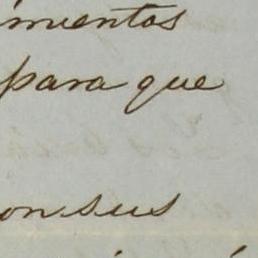 imientos
para que
con sus